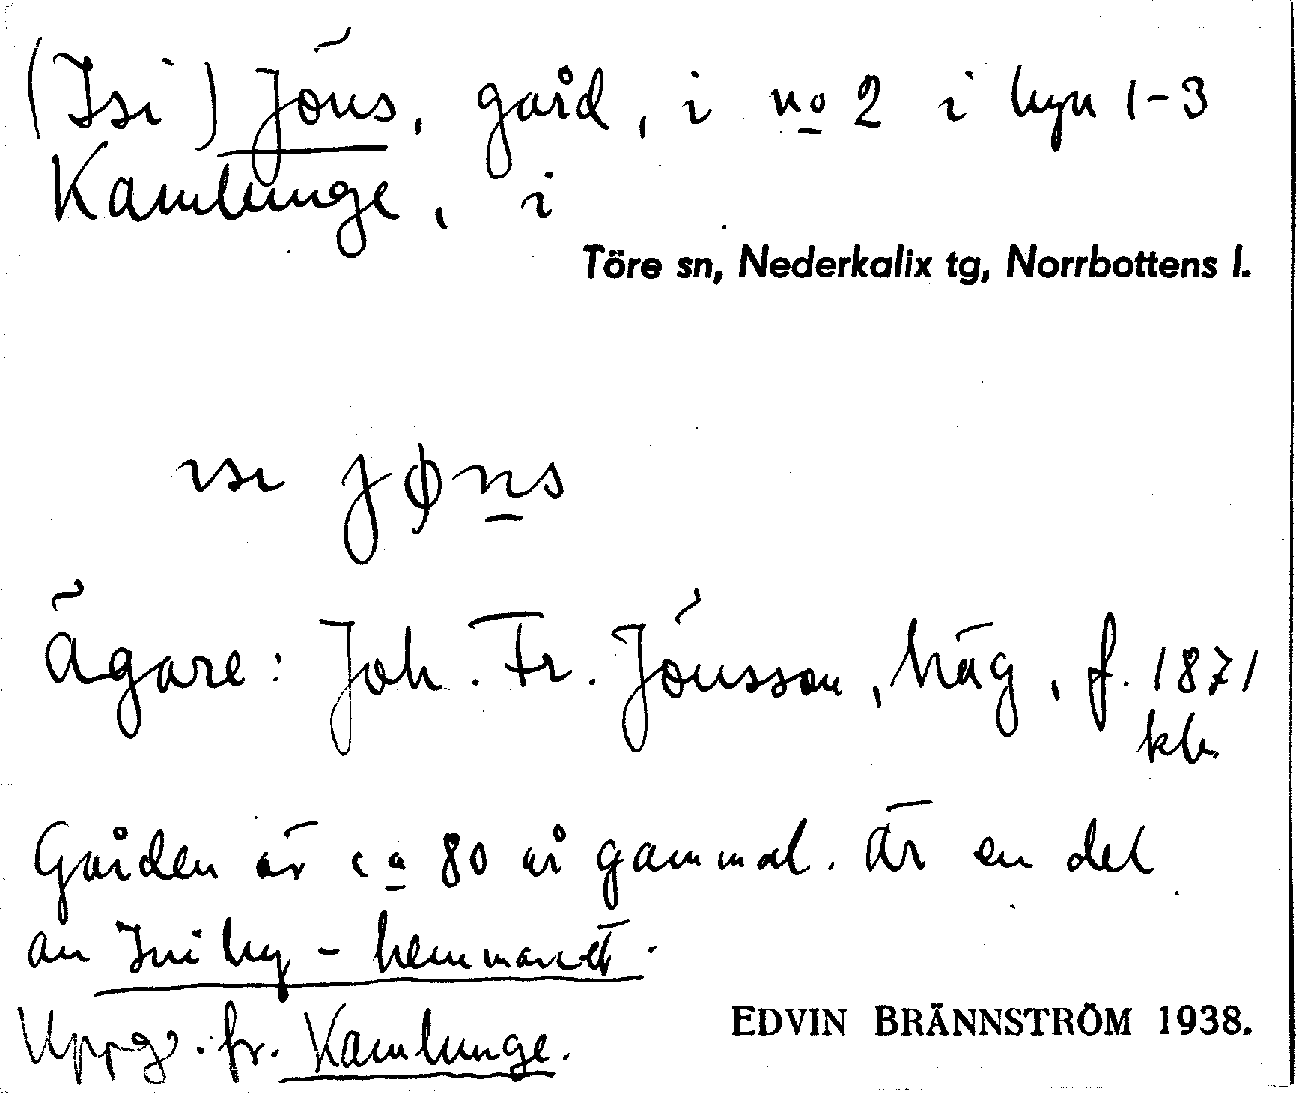 (Isi) Jöns, gård, i no 2 i byn 1-3
Kamlunge, i
Töre sn, Nederkalix tg, Norrbottens l.
ɪsɪ jøn̲s
Ägare: Joh. Fr. Jönsson, häg, f. 1871
kl.
Gården är ca 80 år gammal. Är en del
av Isi by-hemmanet.
Uppg. fr. Kamlunge.
EDVIN BRÄNNSTRÖM 1938.